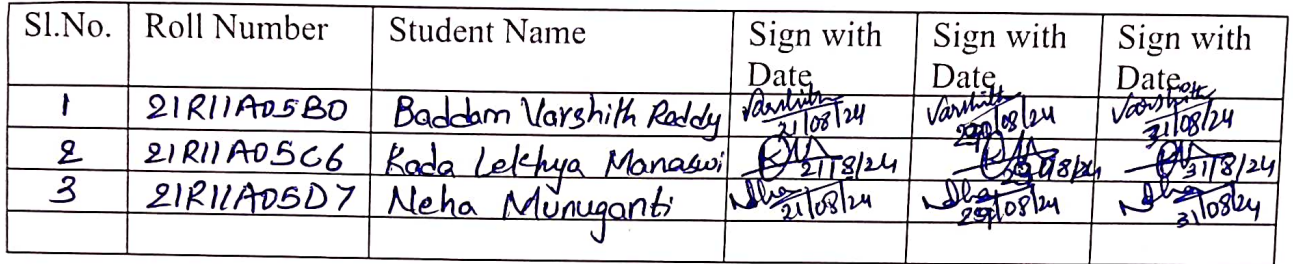 Sl.No. Roll Number Student Name Sign with Date Sign with Date Sign with Date
1 21R11A05B0 Baddam Varshith Reddy Varshith 21/08/24 Varshith /08/24 Varshith 31/08/24
2 21R11A05C6 Kada Lekhya Manaswi 21/8/24 /8/24 31/8/24
3 21R11A05D7 Neha Munuganti Neha 21/08/24 Neha /08/24 Neha 31/08/24